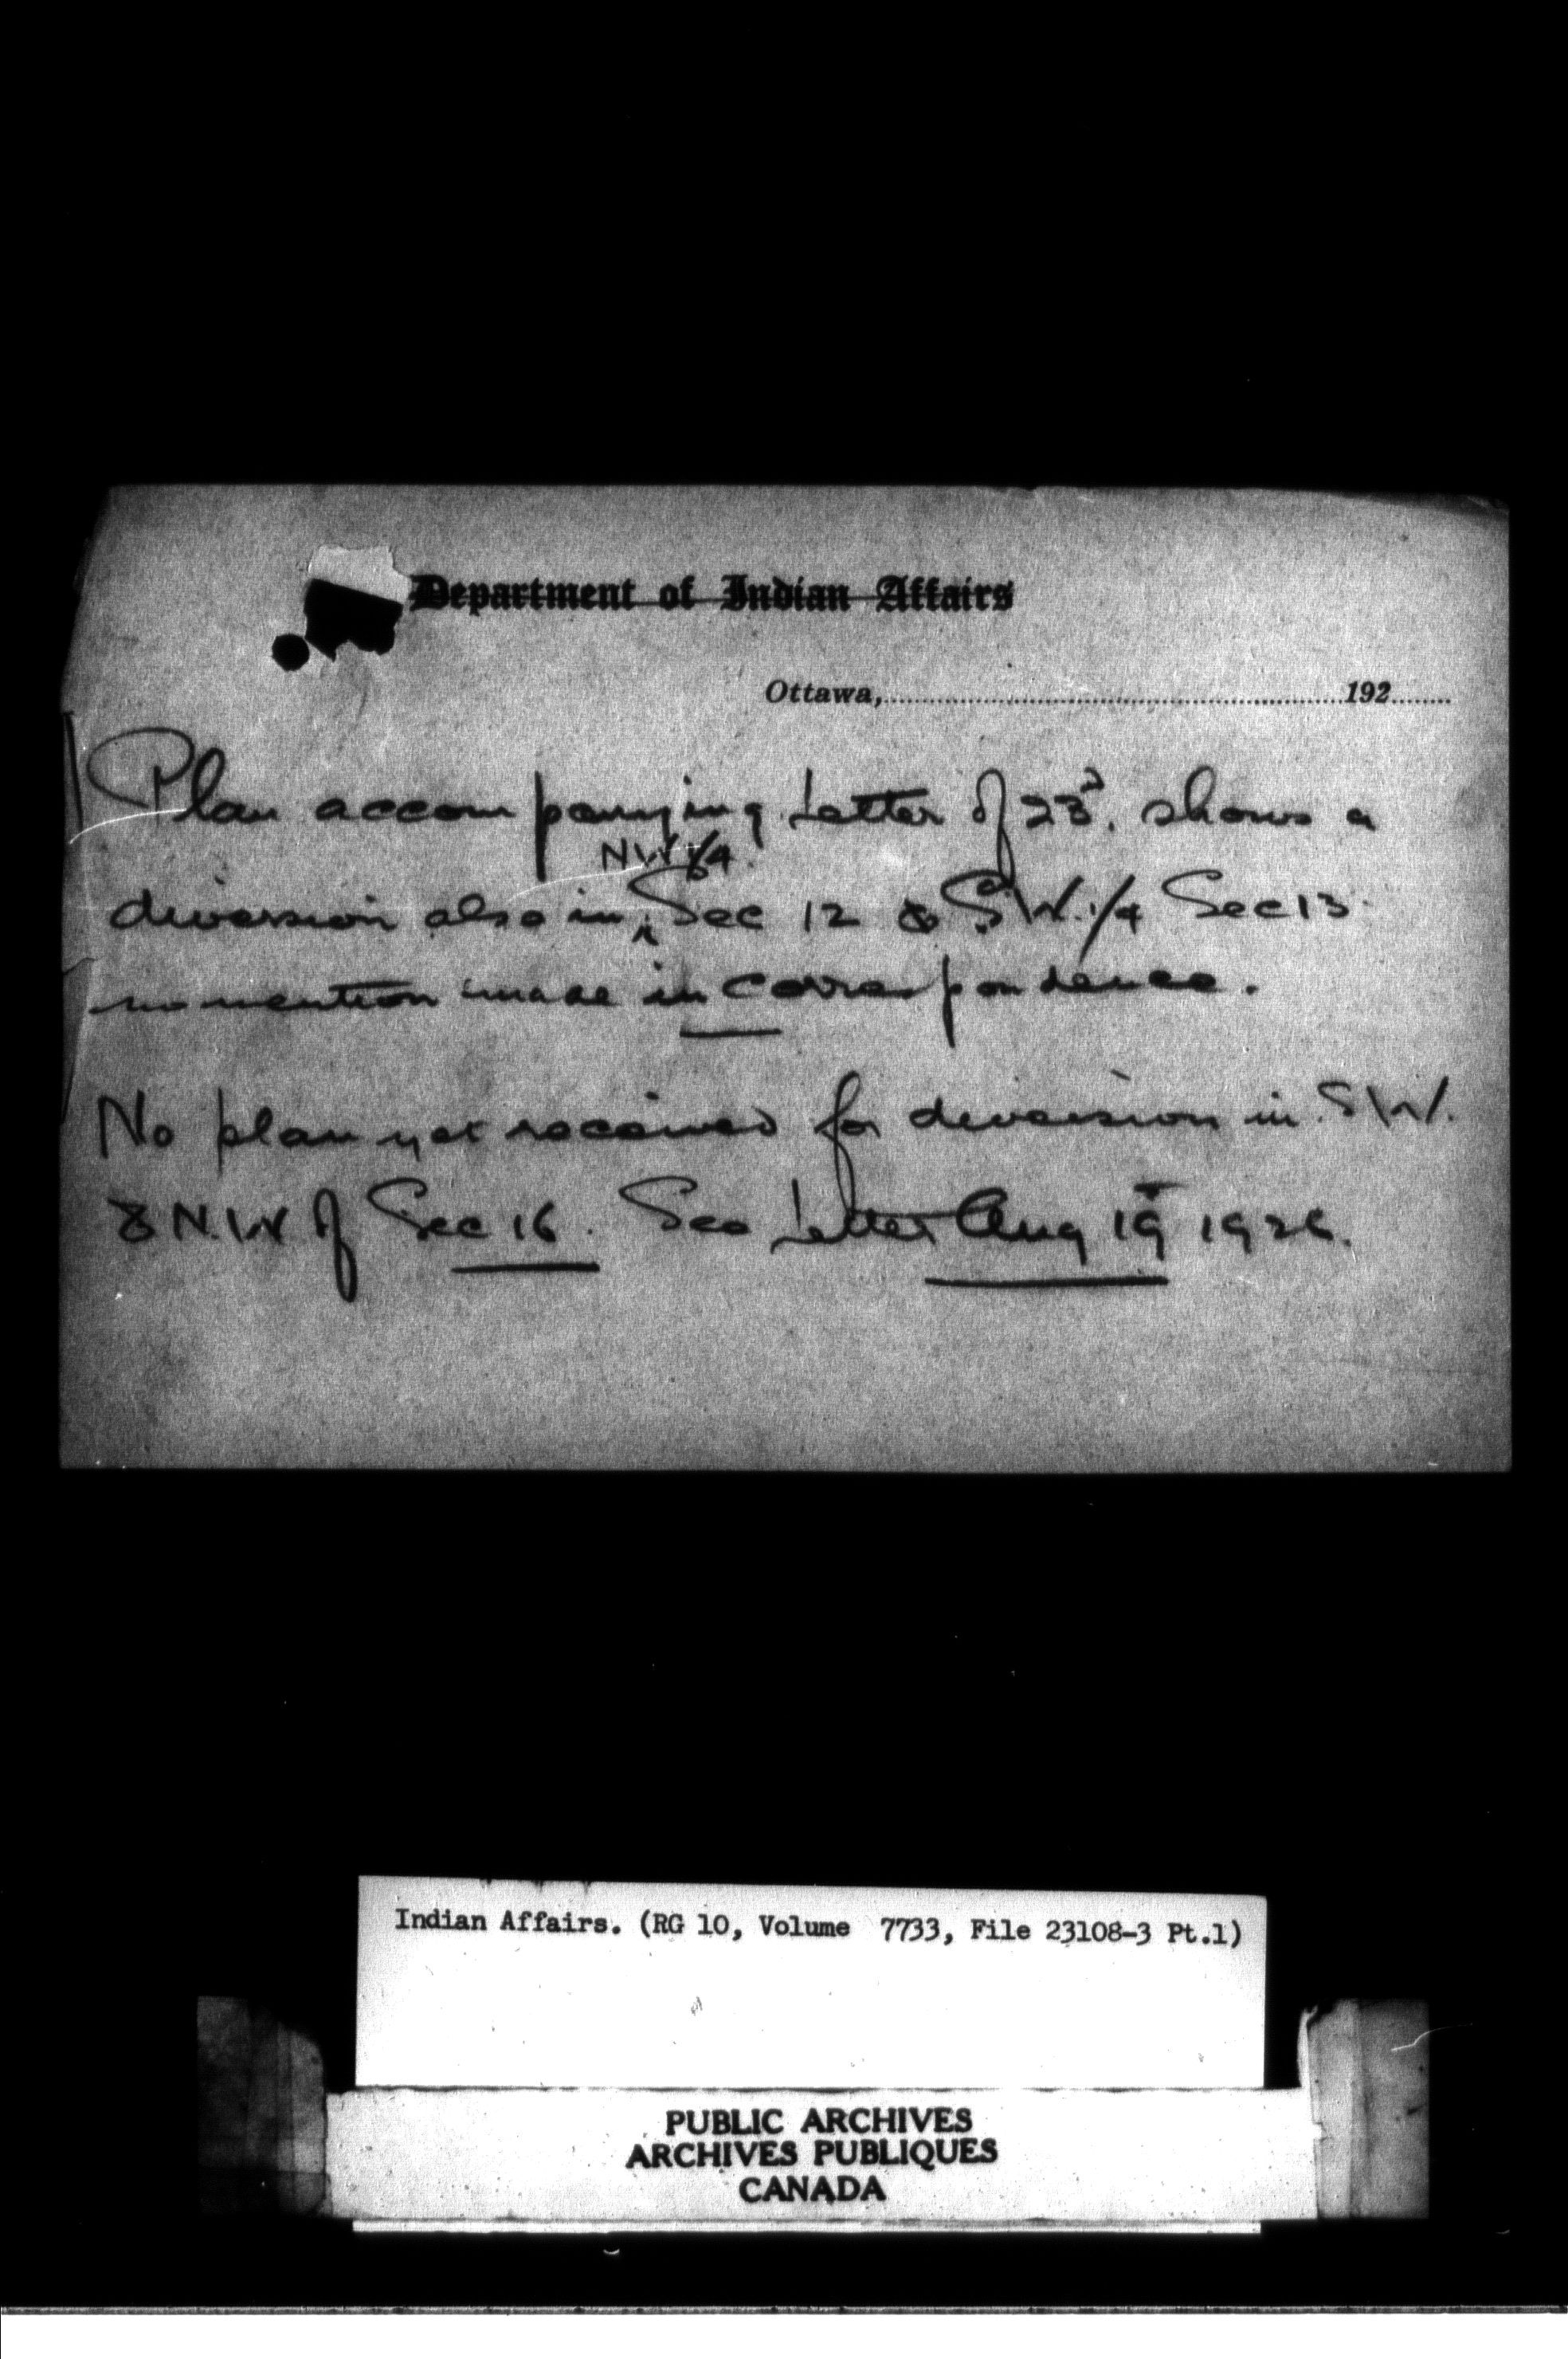 Department of Indian Affairs
Ottawa,..........192......
Plan accompanying letter of 23d. shows a
NW 1/4
diversion also in ‸ Sec 12 & S.W. 1/4 Sec 13
no mention made in correspondence.
No plan yet received for diversion in S.W.
& N.W of Sec 16. See letter Aug 19th 1926.
Indian Affairs. (RG 10, Volume 7733, File 23108-3 Pt.1)
PUBLIC ARCHIVES
ARCHIVES PUBLIQUES
CANADA